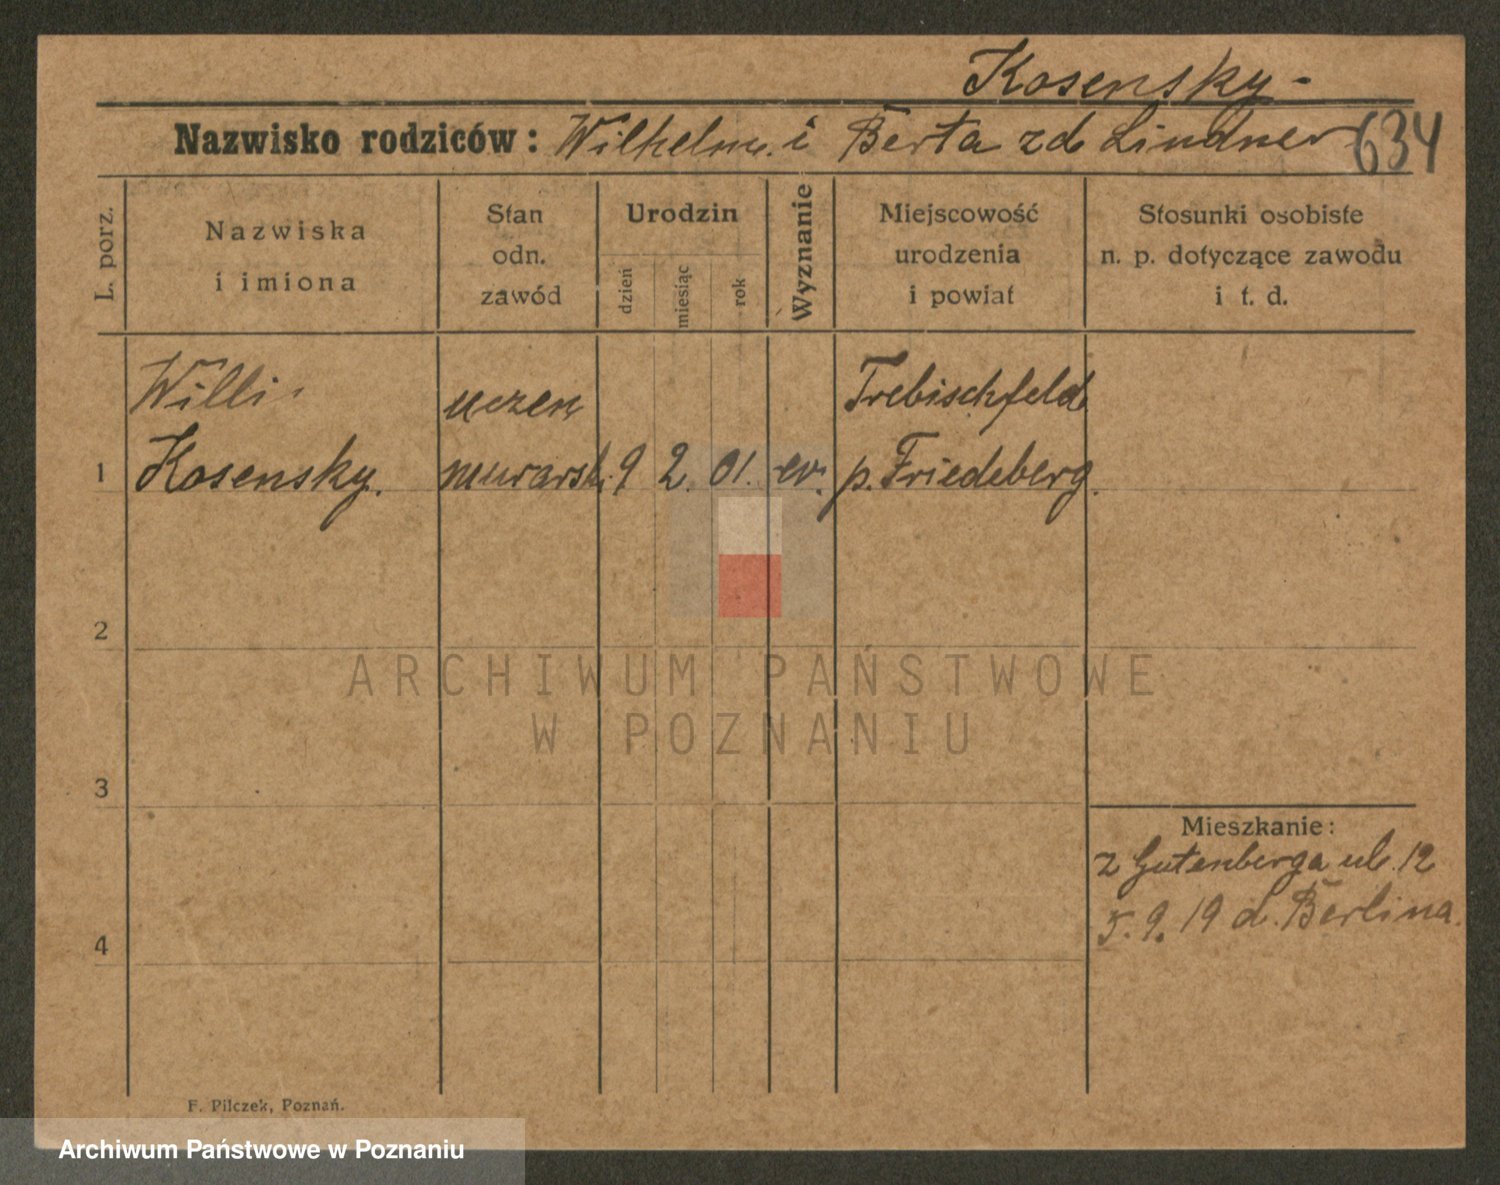 Kosensky
Nazwisko rodziców: Wilhelm i Berta zd Lindner 634
L. porz.
Nazwiska
i imiona
Stan
odn.
zawód
Urodzin
dzień
miesiąc
rok
Wyznanie
Miejscowość
urodzenia
i powiat
Stosunki osobiste
n. p. dotyczące zawodu
i t. d.
Willi uczen Trebischfeld
1 Kosensky. murarsk. 9 2. 01. ev. p. Friedeberg.
2
ARCHIWUM PAŃSTWOWE
W POZNANIU
3
Mieszkanie:
z Gutenberga ul. 12
4 5. 9. 19 d. Berlina.
F. Pilczek, Poznań.
Archiwum Państwowe w Poznaniu